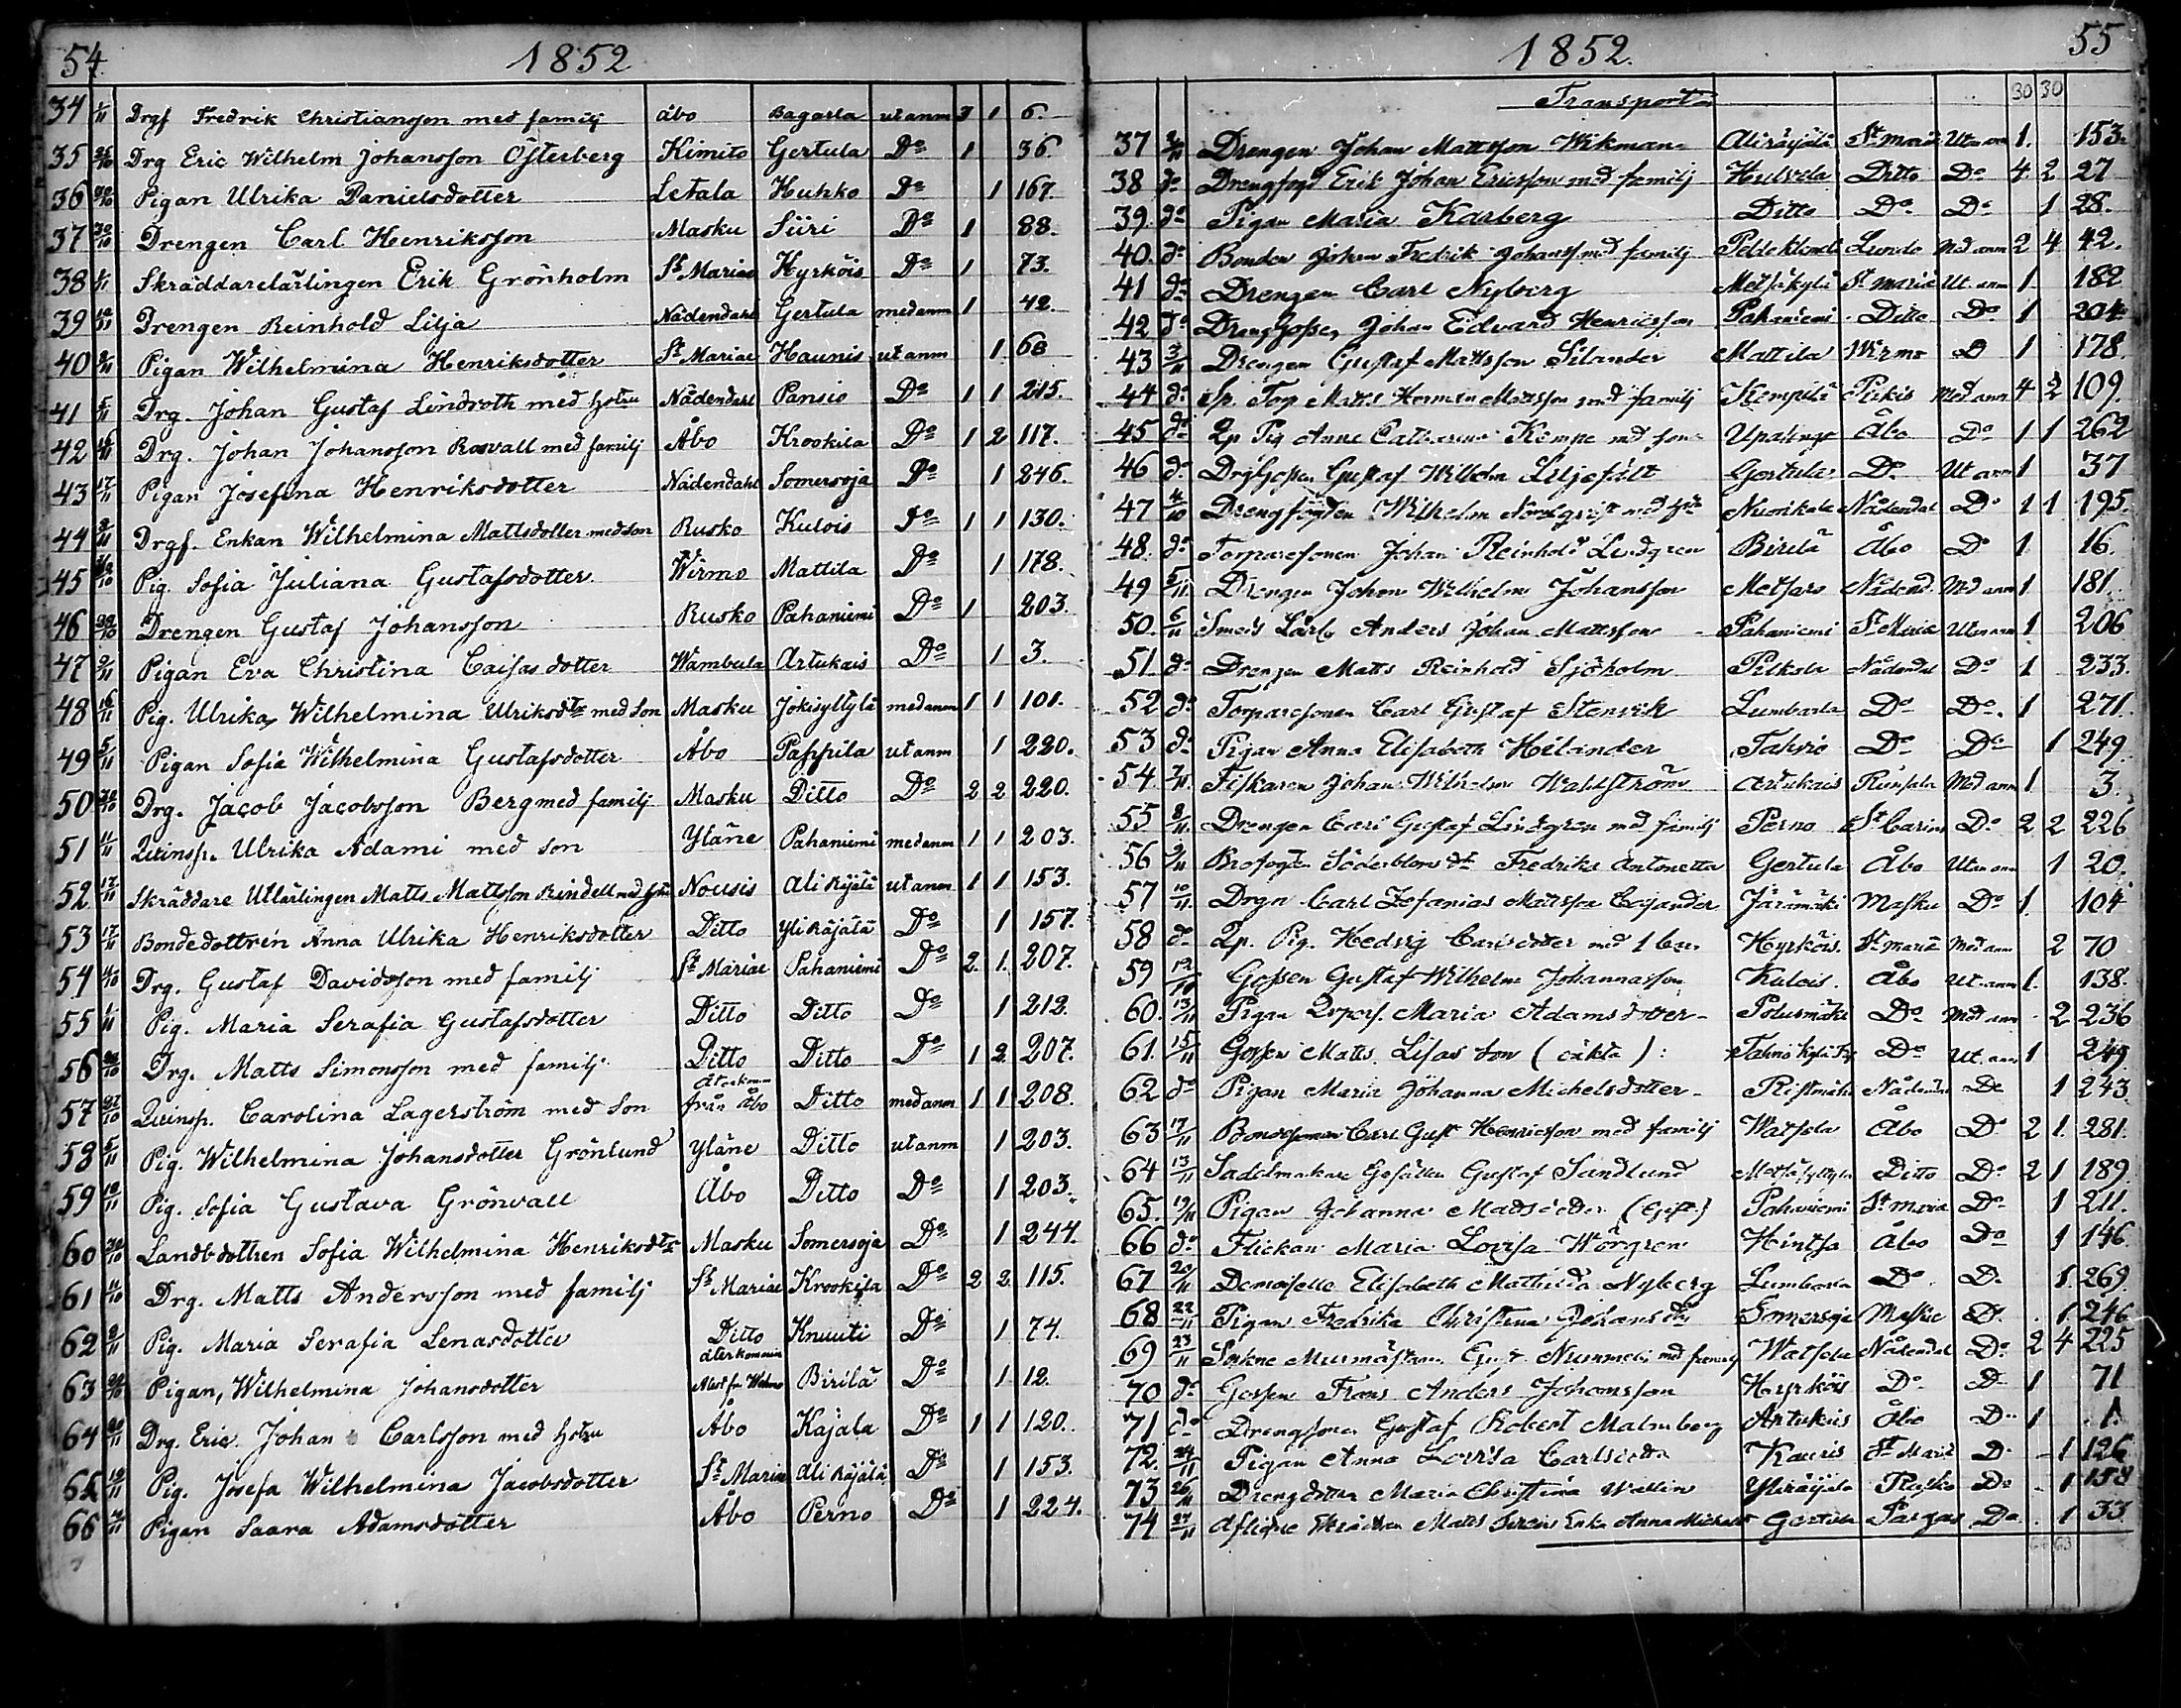 54. 1852
34 1/11 Drgf Fredrik Christiansson med familj åbo Bagarla ut anm 3 1 6.
35 26/10 Drg Eric Wilhelm Johansson Österberg Kimito Gertula Do 1 36.
36 30/10 Pigan Ulrika Danielsdotter Letala Huhko Do 1 167.
37 30/10 Drengen Carl Henriksson Masku Siiri Do 1 88.
38 1/11 Skräddarelärlingen Erik Grönholm St Mariae Hyrköis Do 1 73.
39 12/11 Drengen Reinhold Lilja Nådendahl Gertula med anm 1 42.
40 2/11 Pigan Wilhelmina Henriksdotter St Mariae Haunis ut anm 1 60
41 5/11 Drg. Johan Gustaf Lindroth med hstru Nådendahl Pansio Do 1 1 215.
42 4/11 Drg. Johan Johansson Rosvall med familj Åbo Krookila Do 1 2 117.
43 17/11 Pigan Josefina Henriksdotter Nådendahl Somersoja Do 1 246.
44 2/11 Drgf. Enkan Wilhelmina Mattsdotter med son Rusko Kulois Do 1 1 130.
45 /10 Pig. Sofia Juliana Gustafsdotter. Wirmo Mattila Do 1 178.
46 29/10 Drengen Gustaf Johansson Rusko Pahaniemi Do 1 203.
47 2/11 Pigan Eva Christina Caisasdotter Wambula Artukais Do 1 3.
48 16/11 Pig. Ulrika Wilhelmina Ulriksdtr med son Masku Jokisyltylä med anm 1 1 101.
49 5/11 Pigan Sofia Wilhelmina Gustafsdotter Åbo Pappila ut anm 1 220.
50 30/10 Drg. Jacob Jacobsson Berg med familj Masku Ditto Do 2 2 220.
51 11/11 Qvinsp. Ulrika Adami med son Yläne Pahaniemi med anm 1 1 203.
52 17/11 Skräddare Utlärlingen Matts Mattsson Rindell med hstru Nousis Ali Räjälä ut anm 1 1 153.
53 17/11 Bondedottren Anna Ulrika Henriksdotter Ditto Yli Räjälä Do 1 157.
54 4/10 Drg. Gustaf Davidsson med familj St Mariae Pahaniemi Do 2. 1. 207.
55 1/11 Pig. Maria Serafia Gustafsdotter Ditto Ditto Do 1 212.
56 26/10 Drg. Matts Simonsson med familj Ditto Ditto Do 1 2 207.
57 27/10 Qvinsp. Carolina Lagerström med son återkomm från åbo Ditto med anm 1 1 208.
58 5/11 Pig. Wilhelmina Johansdotter Grönlund Yläne Ditto ut anm 1 203.
59 18/11 Pig. Sofia Gustava Grönvall Åbo Ditto Do 1 203.
60 30/10 Landbdottren Sofia Wilhelmina Henriksdtr Masku Somersoja Do 1 244.
61 11/10 Drg. Matts Andersson med familj St Mariae Krookila Do 2 2 115.
62 2/11 Pig. Maria Serafia Lenasdotter Ditto Knuuti Do 1 74.
63 29/10 Pigan, Wilhelmina Johansdotter återkommen Birilä Do 1 12.
64 20/11 Drg. Eric Johan Carlsson med hstru Åbo Kajala Do 1 1 120.
65 19/11 Pig. Josefa Wilhelmina Jacobsdotter St Mariae Ali Räjälä Do 1 153.
66 /11 Pigan Saara Adamsdotter Åbo Perno Do 1 224.
1852. 55
Transport 30 30
37 2/11 Drengen Johan Mattsson Wikman Aliräjälä St Mariæ Utan anm 1. 153.
38 do Drengfogd Erik Johan Ericsson med familj Hulvela Ditto Do 4 2 27
39 do Pigan Maria Karberg Ditto Do Do 1 28.
40. do Bonden Johan Fredrik Johanss med familj Lundo Med anm 2 4 42.
41 do Drengen Carl Nyberg Metsäkylä St Mariæ Ut. anm 1 182
42 do DrengGossen Johan Edvard Henricsson Pahaniemi Ditto Do 1 204
43 3/11 Drengen Gustaf Mattsson Silander Mattila Wirmo D 1 178.
44 do Sp. Torp Matts Herman Mattsson med familj Kempilä Pikis Med anm 4 2 109.
45 do Qp Pig Anna Catharina Kempe md son Upalinge Åbo Do 1 1 262
46 do DrgGossen Gustaf Wilhelm Liljefält Gertula Do Ut anm 1 37
47 4/10 Drengfogden Wilhelm Nordqvist med hstr Nuorikala Nådendal Do 1 1 195.
48. do Torparesonen Johan Reinhold Lindgren Birilä Åbo Do 1 16.
49 5/11 Drengen Johan Wilhelm Johansson Metsaro Nådend Med anm 1 181.
50. 6/11 Smeds Lärl Anders Johan Mattsson Pahaniemi St Mariæ Utan anm 1 206
51. do Drengen Matts Reinhold Sjöholm Piltola Nådendal Do 1 233.
52 do Torparesonen Carl Gustaf Stenvik Lumbarla Do Do. 1 271.
53 do Pigan Anna Elisabeth Helander Tahvio Do Do 1 249.
54. 7/11 Fiskaren Johan Wilhelm Wahlström Artukais Runsala Med anm 1 3.
55 8/11 Drengen Carl Gustaf Lindgren med familj Perno St Carins Do 2 2 226
56 9/11 Brofogden Söderbloms dtr Fredrika Antonetta Gertula Åbo Utan anm 1 20.
57 10/11 Drgn Carl Zefanias Mattsson Cajander Järämäki Masku Do 1 104
58 do Qp. Pig. Hedvig Carlsdotter med 1 barn Hyrköis. St Mariæ Med anm 2 70
59 12/10 Gossen Gustaf Wilhelm Johannasson Kulois. Åbo Ut. anm 1. 138.
60. 13/11 Pigan Maria Adamsdotter Polusmäki Do Med anm 2 236
61. 15/11 Gossen Matts Lisas son (oäkta): Do Ut. anm 1 249.
62 do Pigan Maria Johanna Michelsdotter Ristmäki Nådendal Do 1 243
63 17/11 Bondesonen Carl Gust Henricsson med familj Watsela Åbo Do 2 1. 281.
64 13/11 Sadelmakare Gesällen Gustaf Sandlund Ditto Do 2 1 189.
65. 19/11 Pigan Johanna Matsdotter (Gift) Pahaniemi St Maria Do 1 211.
66 do Flickan Maria Lovisa Wörgren Hintsa Åbo Do 1 146.
67 20/11 Demoiselle Elisabeth Mathilda Nyberg Lumbarla Do D 1. 269.
68 22/11 Pigan Fredrika Christina Johansdtr Somersoja Masku Do 1 246
69 23/11 Sockne Murmästaren Gust Nummelin med familj Watsela Nådendal Do 2 4 225
70 do Gossen Frans Anders Johansson Hyrköis Do D 1 71
71 do Drengsonen Gustaf Robert Malmberg Artukais Åbo D 1 1.
72. 24/11 Pigan Anna Lovisa Carlsdotter Kauris St Mariæ D 1 126
73 26/11 Drengdottren Maria Christina Wallin Yliräjälä Rusko Do 1 158
74 27/11 Aflidne Matts Enka Anna Gertula Pargas Do 1 33
63